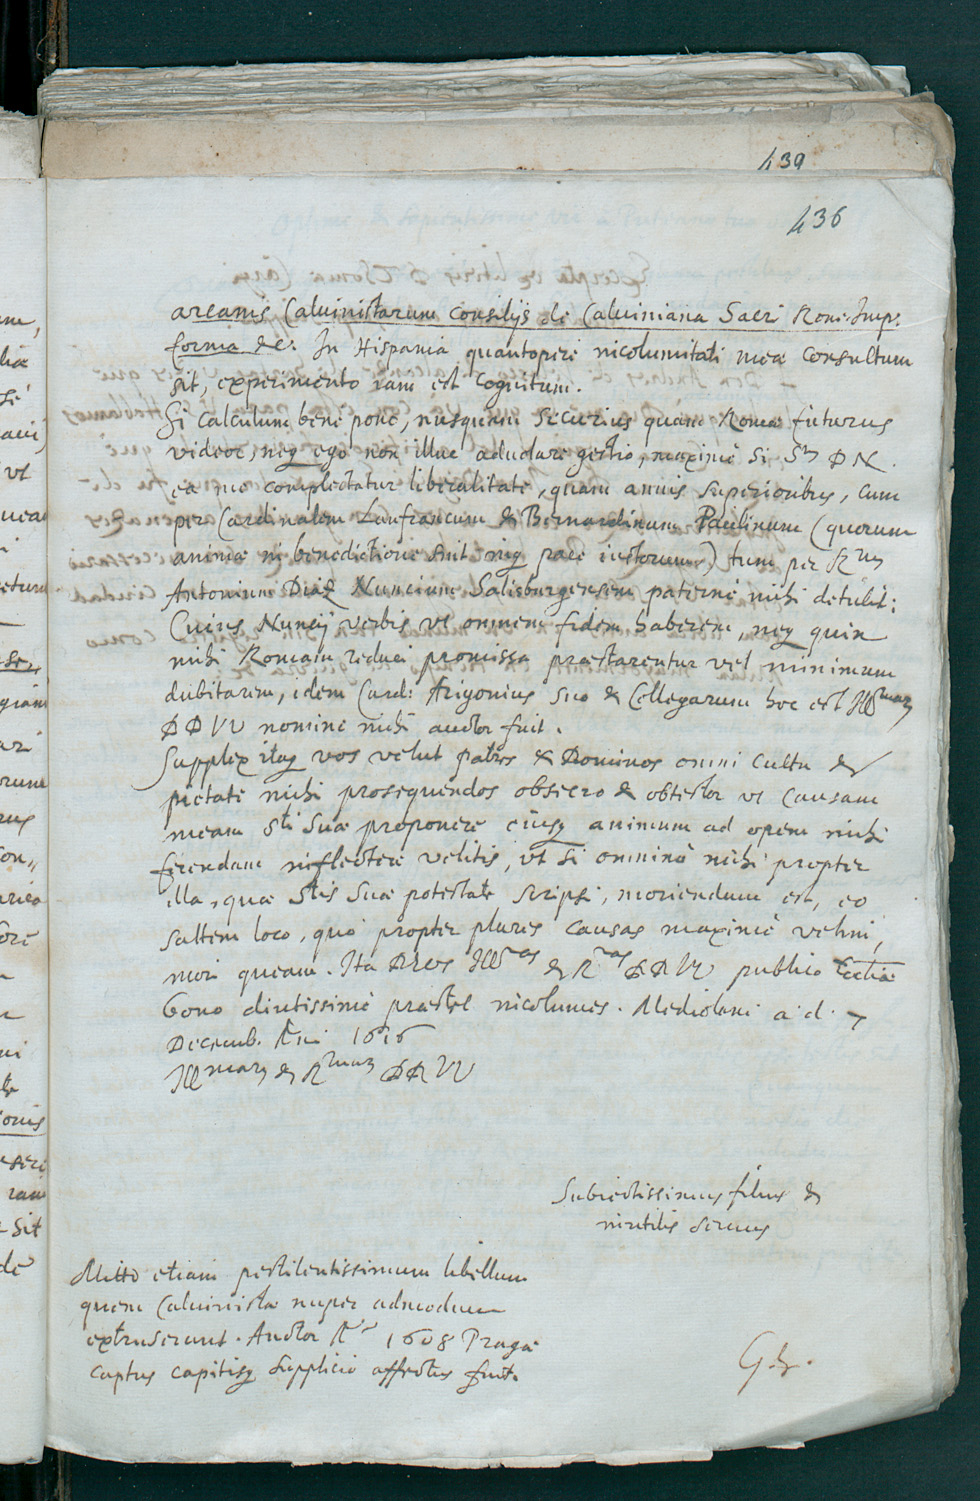 439
436
arcanis Calvinistarum consilijs de Calviniana Sacri Rom: Imp:
forma &c: In Hispania quantopere incolumitati meae consultum
sit, experimento iam est cognitum.
Si calculum bene pono, nusquam securius quam Romae futurus
videor, neq ego non illuc advolare gestio, maximè si S.ᵐ D N.
ea me complectatur liberalitate, quam annis superioribus, cum
per Cardinalem Lanfrancum & Bernardinum Paulinum (quorum
animae in benedictione sint inq pace iustorum) tum per R.ᵘᵐ
Antonium Diaz Nuncium Salisburgensem paternè mihi detulit:
Cuius Nuncij verbis vt omnem fidem haberem, neq quin
mihi Romam reduci promissa praestarentur vel minimum
dubitarem, idem Card: Arigonius suo & Collegarum hoc est Illᵐᵃʳ
DD VV nomine mihi auctor fuit.
Supplex itaq vos velut patres & Dominos omni cultu &
pietate mihi prosequendos obsecro & obtestor vt causam
meam Sᵗⁱ Suae proponere eiusq animum ad opem mihi
ferendam inflectere velitis, vt si omninò mihi propter
illa, quae Sᵗⁱˢ Suae potestate scripsi, moriendum est, eo
saltem loco, quo propter plures causas maximè velim,
mori queam. Ita Deus Illᵐᵃˢ & Rᵐᵃˢ DD VV publico Ecctiae
bono diutissimè praestet incolumes. Mediolani a. d. 7
Decemb. A.ni 1616
Illᵐᵃʳ & Rᵐᵃʳ DD VV
Subiectissimus filius &
inutilis servus
Mitto etiam pestilentissimum libellum
quem Calvinistae nuper admodum
extruserunt. Auctor A.º 1608 Pragae
captus capitisq supplicio affectus fuit.
G. S.